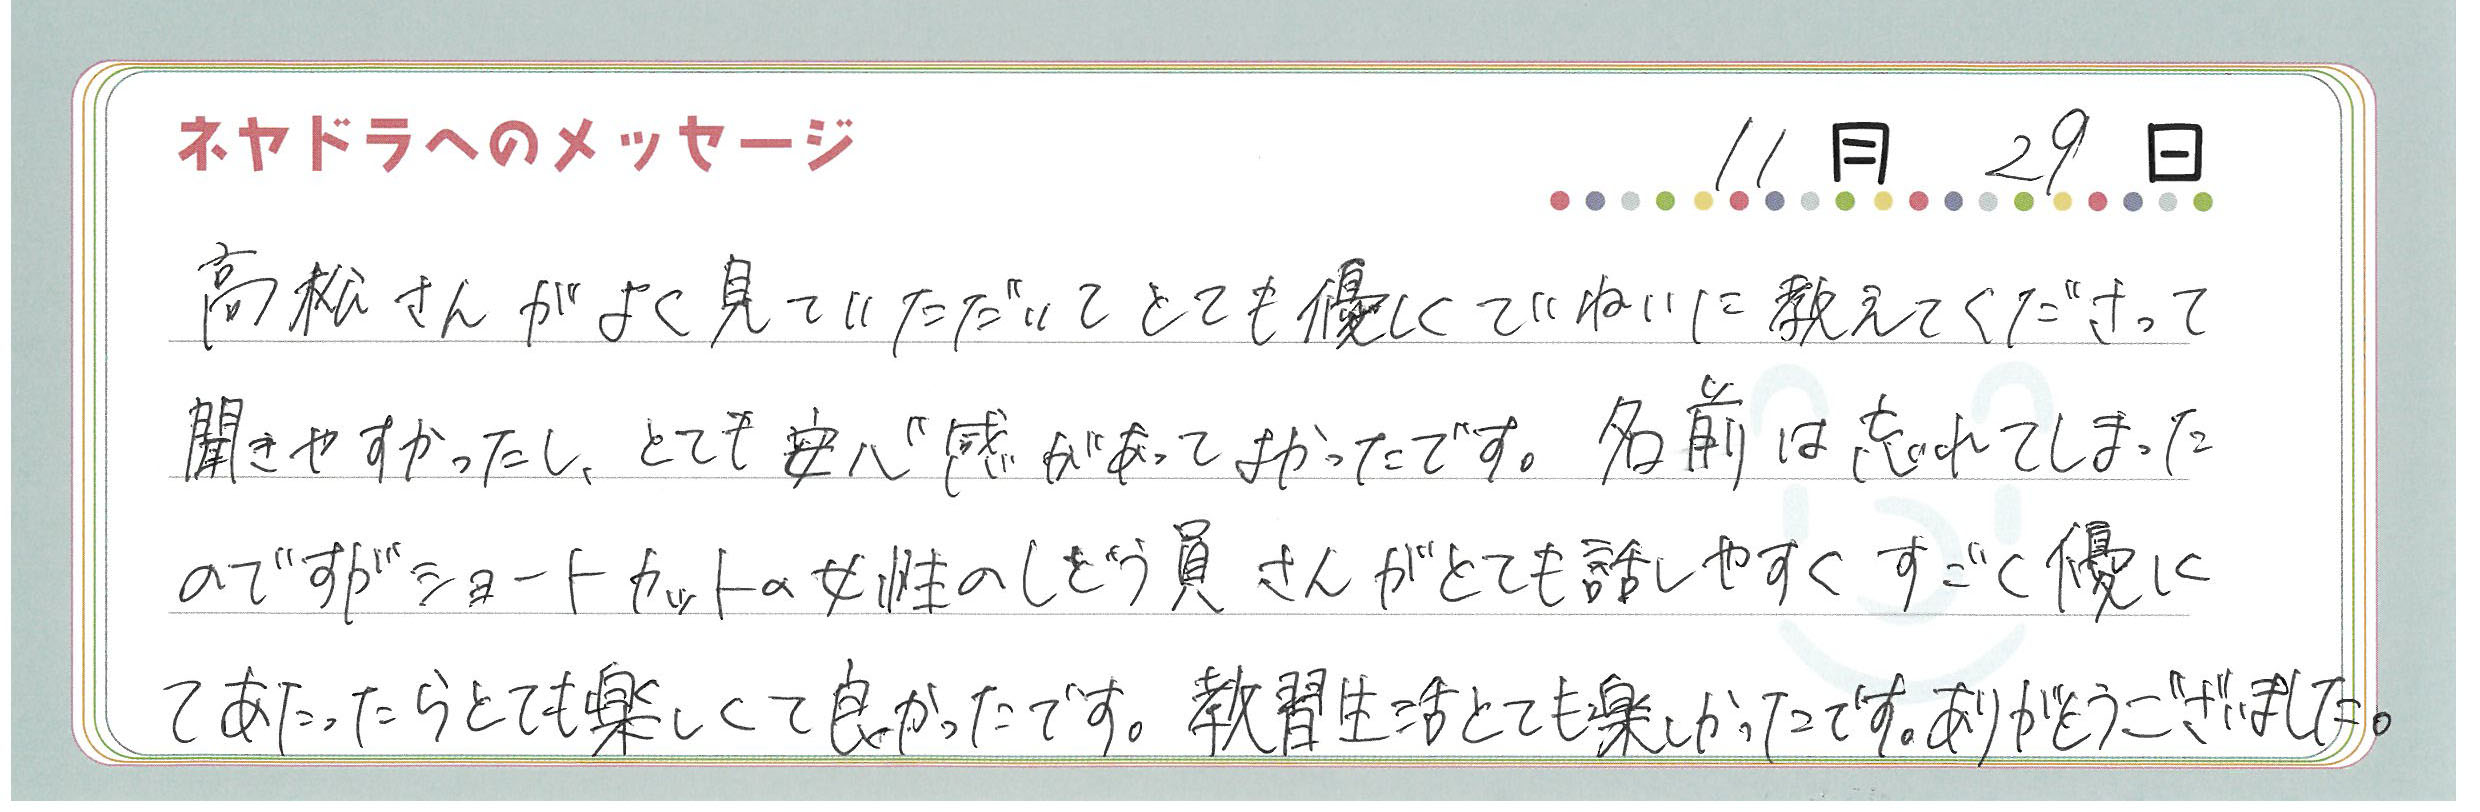 ネヤドラへのメッセージ
11月 29日
高松さんがよく見ていただいてとても優しくていねいに教えてくださって
聞きやすかったし、とても安心感があってよかったです。名前は忘れてしまった
のですがショートカットの女性のしどう員さんがとても話しやすくすごく優しく
てあたったらとても楽しくて良かったです。教習生活とても楽しかったです。ありがとうございました。